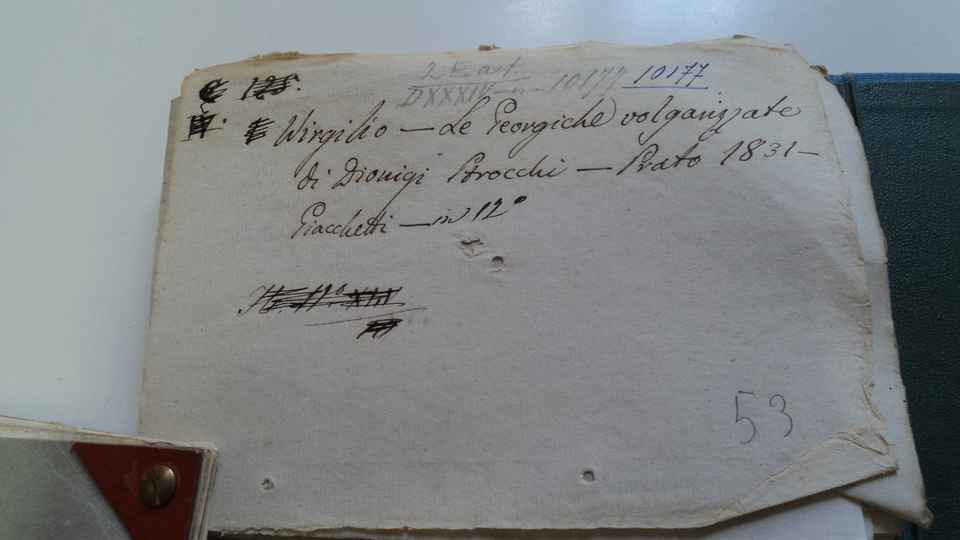 128.
2 E at
DXXXIV - n - 10177 10177
Virgilio — Le Georgiche volgarizzate
di Dionigi Strocchi — Prato 1831 —
Giacchetti — in 12°
53